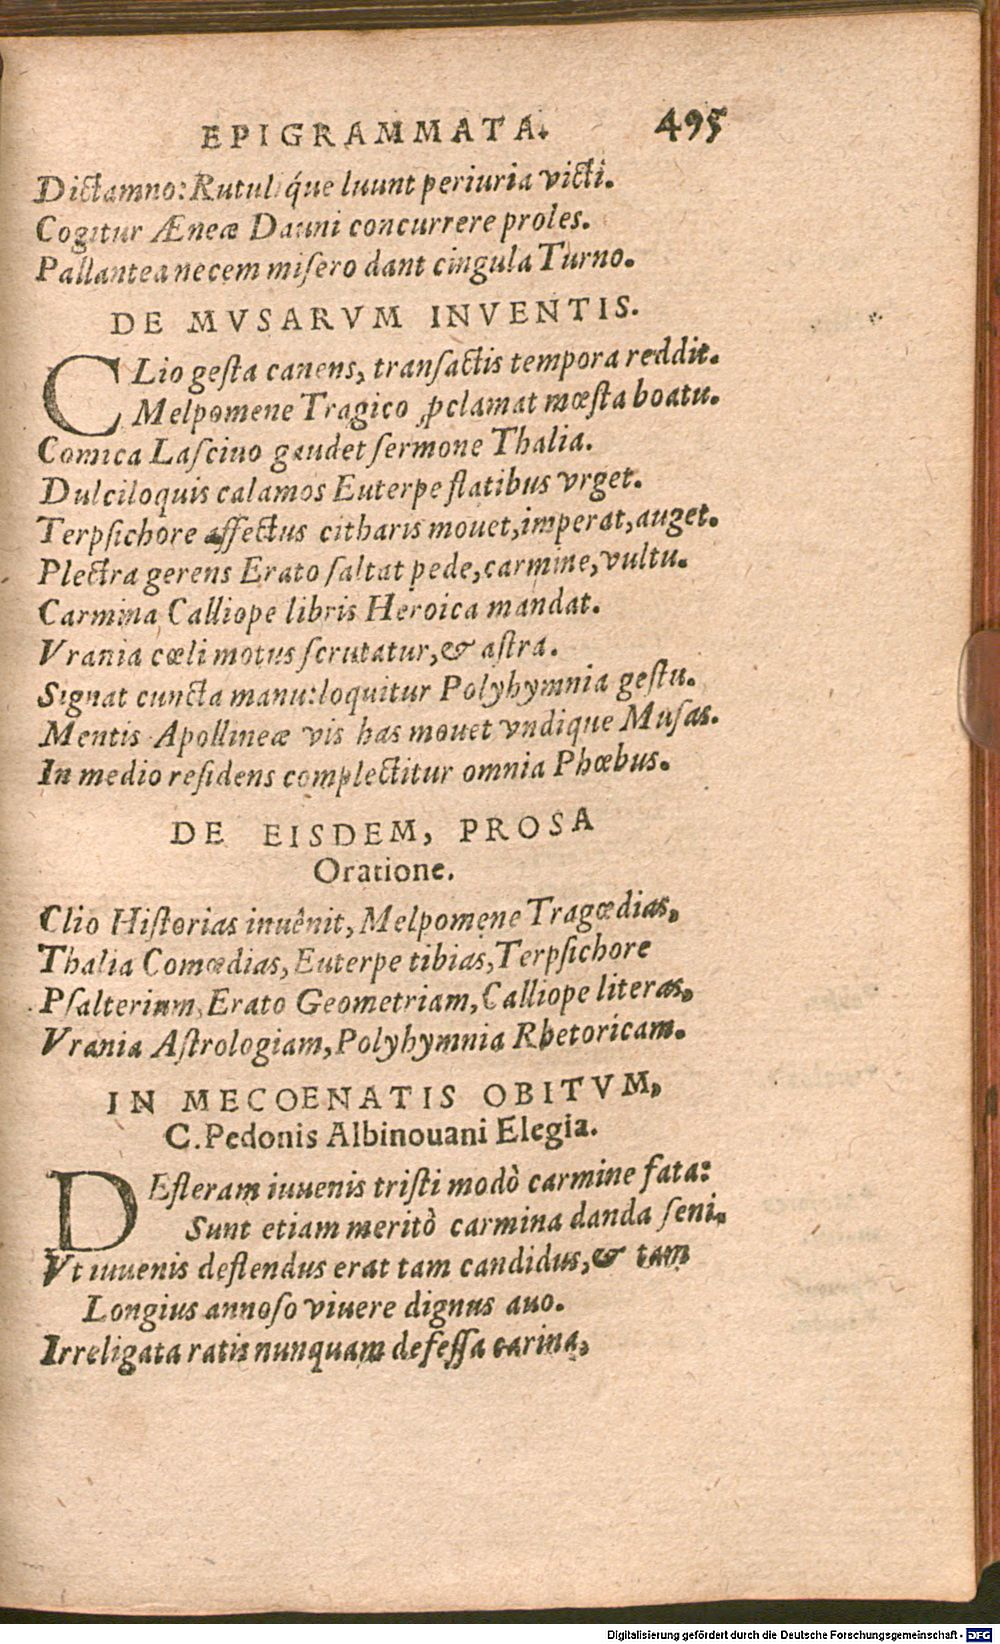 EPIGRAMMATA. 495
Dictamno: Rutuli q́ue luunt periuria victi.
Cogitur Æneæ Dauni concurrere proles.
Pallantea necem misero dant cingula Turno.
DE MVSARVM INVENTIS.
CLio gesta canens, transactis tempora reddit.
Melpomene Tragico ꝓclamat mœsta boatu.
Comica Lasciuo gaudet sermone Thalia.
Dulciloquis calamos Euterpe flatibus vrget.
Terpsichore affectus citharis mouet, imperat, auget.
Plectra gerens Erato saltat pede, carmine, vultu.
Carmina Calliope libris Heroica mandat.
Vrania cœli motus scrutatur, & astra.
Signat cuncta manu: loquitur Polyhymnia gestu.
Mentis Apollineæ vis has mouet vndique Musas.
In medio residens complectitur omnia Phœbus.
DE EISDEM, PROSA
Oratione.
Clio Historias inuênit, Melpomene Tragœdias,
Thalia Comœdias, Euterpe tibias, Terpsichore
Psalterium, Erato Geometriam, Calliope literas,
Vrania Astrologiam, Polyhymnia Rhetoricam.
IN MECOENATIS OBITVM,
C. Pedonis Albinouani Elegia.
DEfleram iuuenis tristi modò carmine fata:
Sunt etiam meritò carmina danda seni.
Vt iuuenis deflendus erat tam candidus, & tam
Longius annoso viuere dignus auo.
Irreligata ratis nunquam defessa carina,
Digitalisierung gefördert durch die Deutsche Forschungsgemeinschaft - DFG